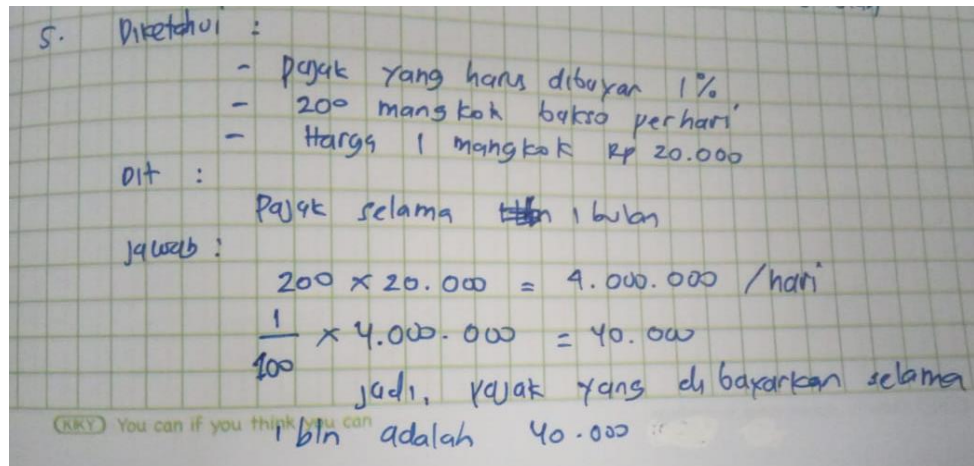 5. Diketahui :
- pajak yang harus dibayar 1%
- 200 mangkok bakso perhari
- Harga 1 mangkok Rp 20.000
Dit :
Pajak selama 1 bulan
Jawab :
200 × 20.000 = 4.000.000 /hari
1/100 × 4.000.000 = 40.000
Jadi, pajak yang di bayarkan selama
KKY You can if you think you can
1 bln adalah 40.000